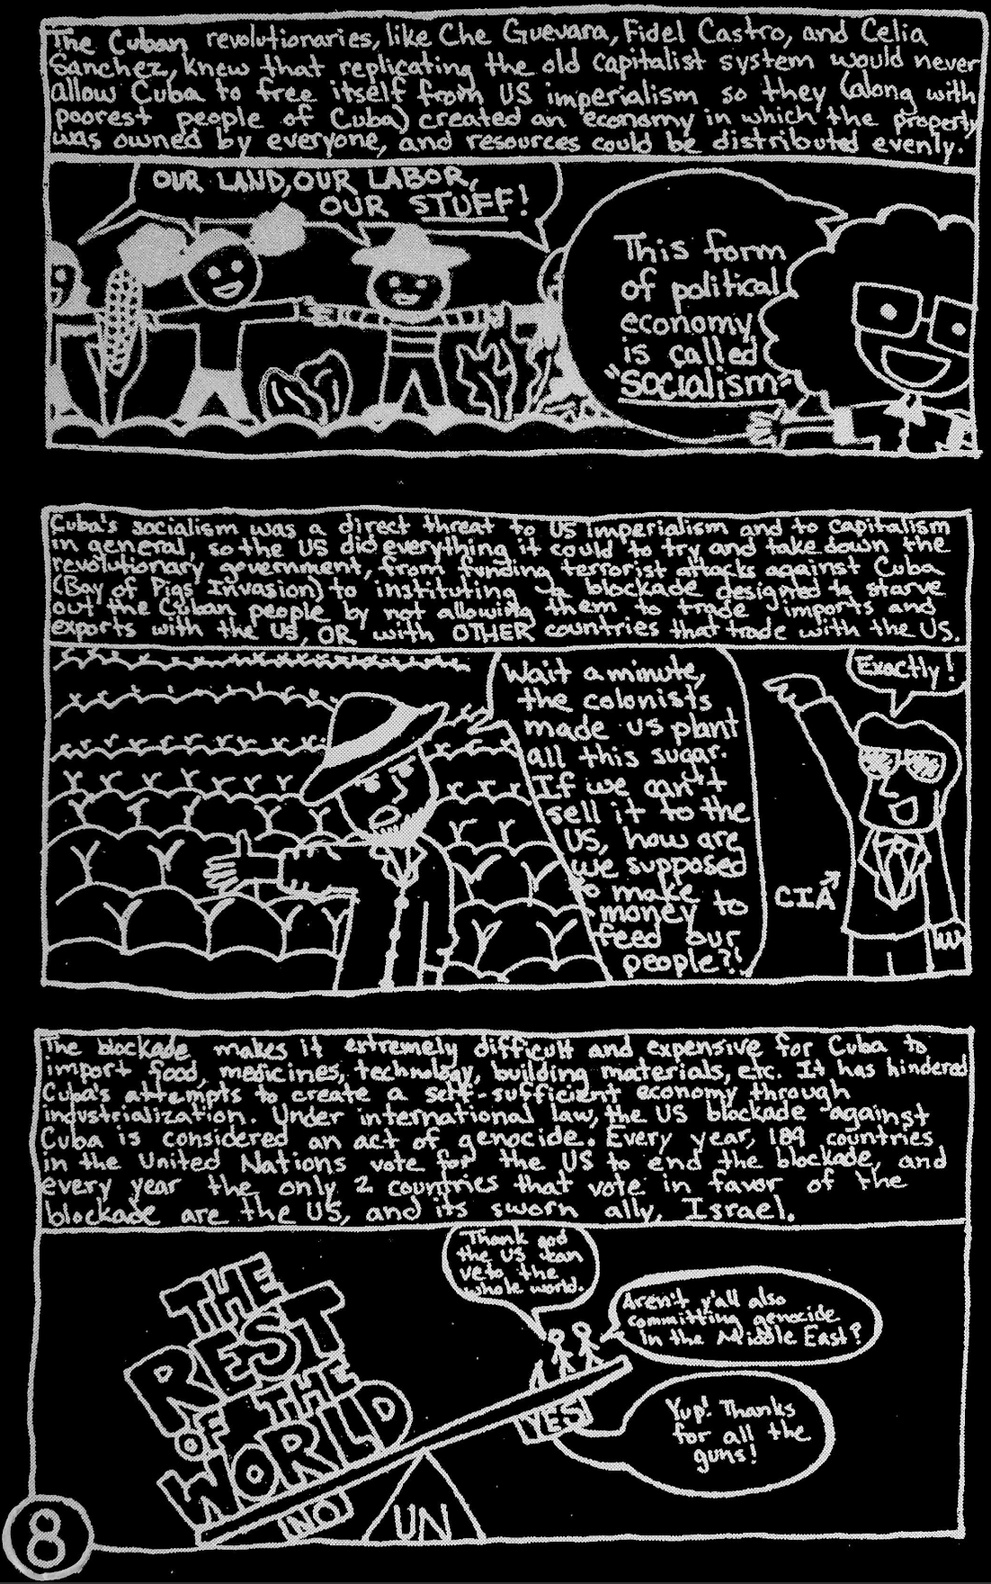 The Cuban revolutionaries, like Che Guevara, Fidel Castro, and Celia
Sanchez, knew that replicating the old capitalist system would never
allow Cuba to free itself from US imperialism so they (along with
poorest people of Cuba) created an economy in which the property
was owned by everyone, and resources could be distributed evenly.
OUR LAND, OUR LABOR,
OUR STUFF!
This form
of political
economy
is called
"SOCIALISM"
Cuba's socialism was a direct threat to US imperialism and to capitalism
in general, so the US did everything it could to try and take down the
revolutionary government, from funding terrorist attacks against Cuba
(Bay of Pigs Invasion) to instituting a blockade designed to starve
out the Cuban people by not allowing them to trade imports and
exports with the US, OR with OTHER countries that trade with the US.
Wait a minute,
the colonists
made us plant
all this sugar.
If we can't
sell it to the
US, how are
we supposed
to make
money to
feed our
people?!
Exactly!
CIA
The blockade makes it extremely difficult and expensive for Cuba to
import food, medicines, technology, building materials, etc. It has hindered
Cuba's attempts to create a self-sufficient economy through
industrialization. Under international law, the US blockade against
Cuba is considered an act of genocide. Every year, 189 countries
in the United Nations vote for the US to end the blockade, and
every year the only 2 countries that vote in favor of the
blockade are the US, and its sworn ally, Israel.
Thank god
the US can
veto the
whole world.
Aren't y'all also
committing genocide
in the Middle East?
Yup! Thanks
for all the
guns!
THE
REST
OF THE
WORLD
YES!
NO!
UN
8